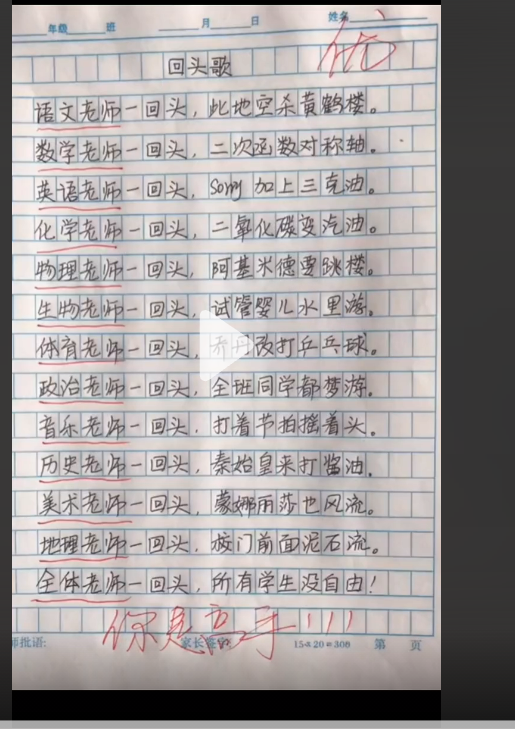 年级 班 月 日 姓名
优
回头歌
语文老师一回头，此地空杀黄鹤楼。
数学老师一回头，二次函数对称轴。
英语老师一回头，sorry加上三克油。
化学老师一回头，二氧化碳变汽油。
物理老师一回头，阿基米德要跳楼。
生物老师一回头，试管婴儿水里游。
体育老师一回头，乔丹改打乒乓球。
政治老师一回头，全班同学都梦游。
音乐老师一回头，打着节拍摇着头。
历史老师一回头，秦始皇来打酱油。
美术老师一回头，蒙娜丽莎也风流。
地理老师一回头，校门前面泥石流。
全体老师一回头，所有学生没自由！
你是高手！！！
师批语: 家长签字: 15×20=300 第 页